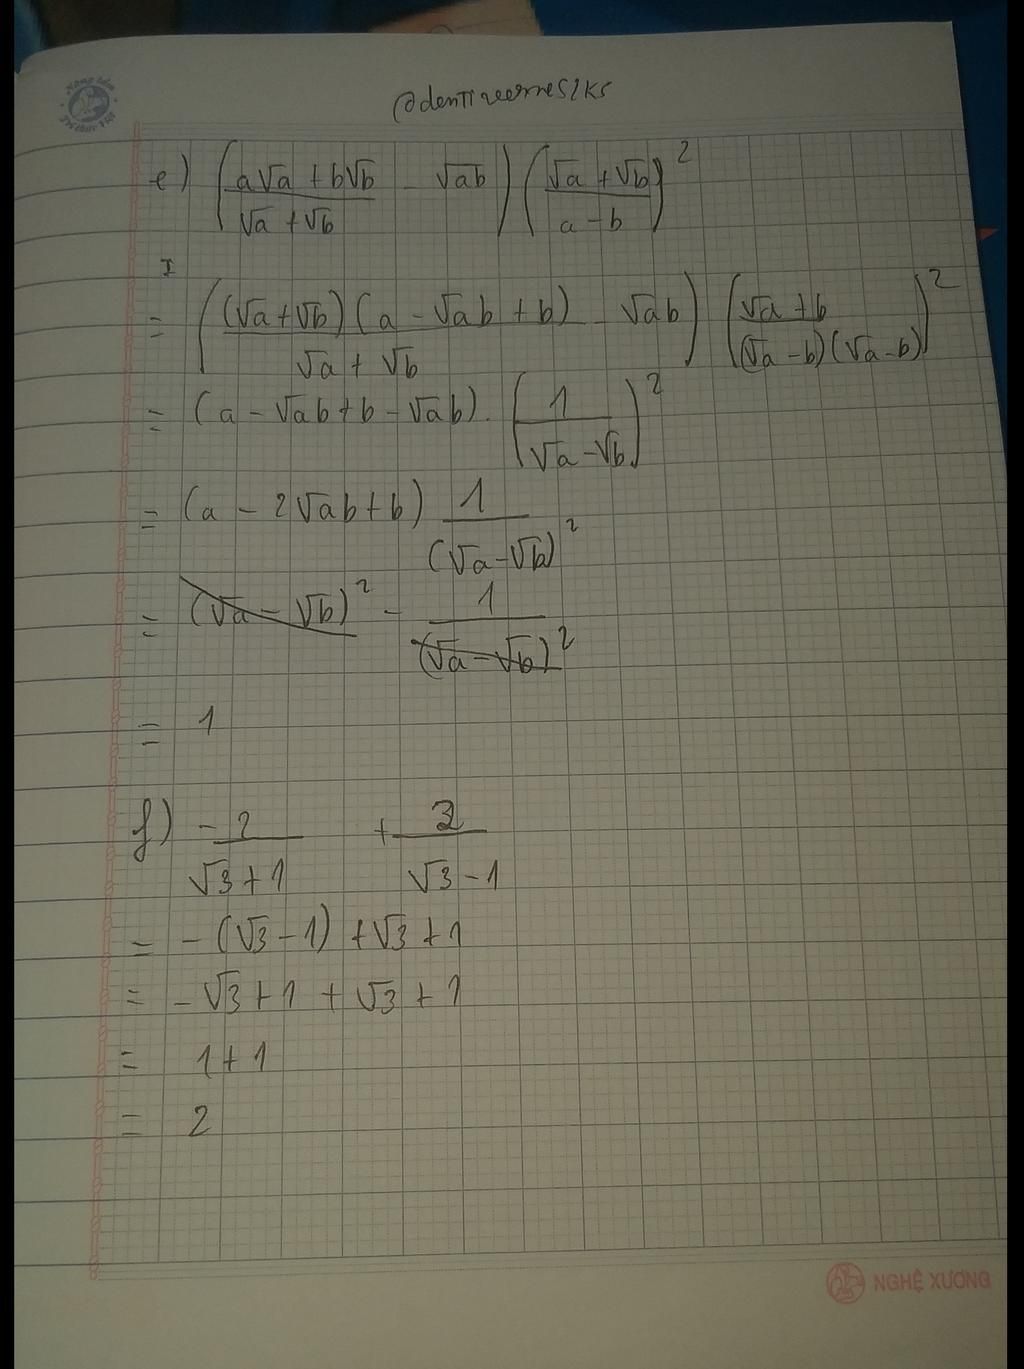 e) (a√a + b√b / √a + √b - √ab) (√a + √b / a - b)²
= ((√a + √b)(a - √ab + b) / √a + √b - √ab) (√a + b / (√a - b)(√a - b))²
= (a - √ab + b - √ab) . (1 / √a - √b)²
= (a - 2√ab + b) 1 / (√a - √b)²
= (√a - √b)² - 1 / (√a - √b)²
= 1
f) - 2 / √3 + 1 + 2 / √3 - 1
= - (√3 - 1) + √3 + 1
= - √3 + 1 + √3 + 1
= 1 + 1
= 2
NGHỆ XƯƠNG